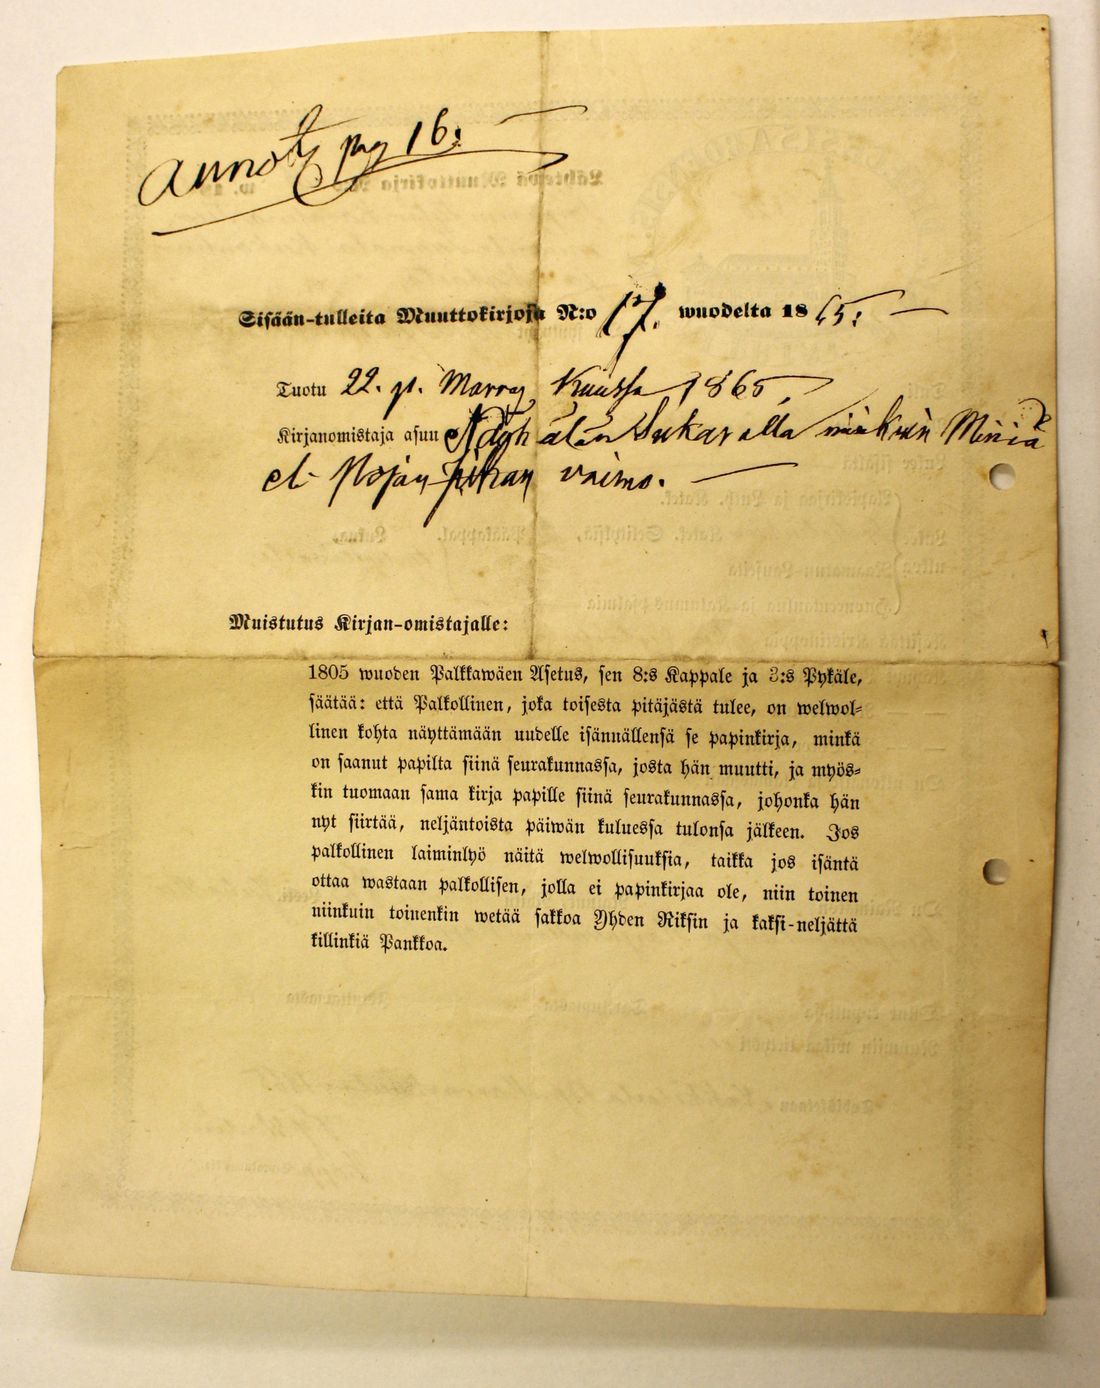 annot pag 16:
Sisään-tulleita Muuttokirjoja N:o 17. wuodelta 1865:
Tuotu 22. p. Marras Kuussa 1865,
Kirjanomistaja asuu niinkuin Miniä
vaimo.
Muistutus Kirjan-omistajalle:
1805 wuoden Palkkawäen Asetus, sen 8:s Kappale ja 3:s Pykäle,
säätää: että Palkollinen, joka toisesta pitäjästä tulee, on welwol-
linen kohta näyttämään uudelle isännällensä se papinkirja, minkä
on saanut papilta siinä seurakunnassa, josta hän muutti, ja myös-
kin tuomaan sama kirja papille siinä seurakunnassa, johonka hän
nyt siirtää, neljäntoista päiwän kuluessa tulonsa jälkeen. Jos
palkollinen laiminlyö näitä welwollisuuksia, taikka jos isäntä
ottaa wastaan palkollisen, jolla ei papinkirjaa ole, niin toinen
niinkuin toinenkin wetää sakkoa Yhden Riksin ja kaksi-neljättä
killinkiä Pankkoa.